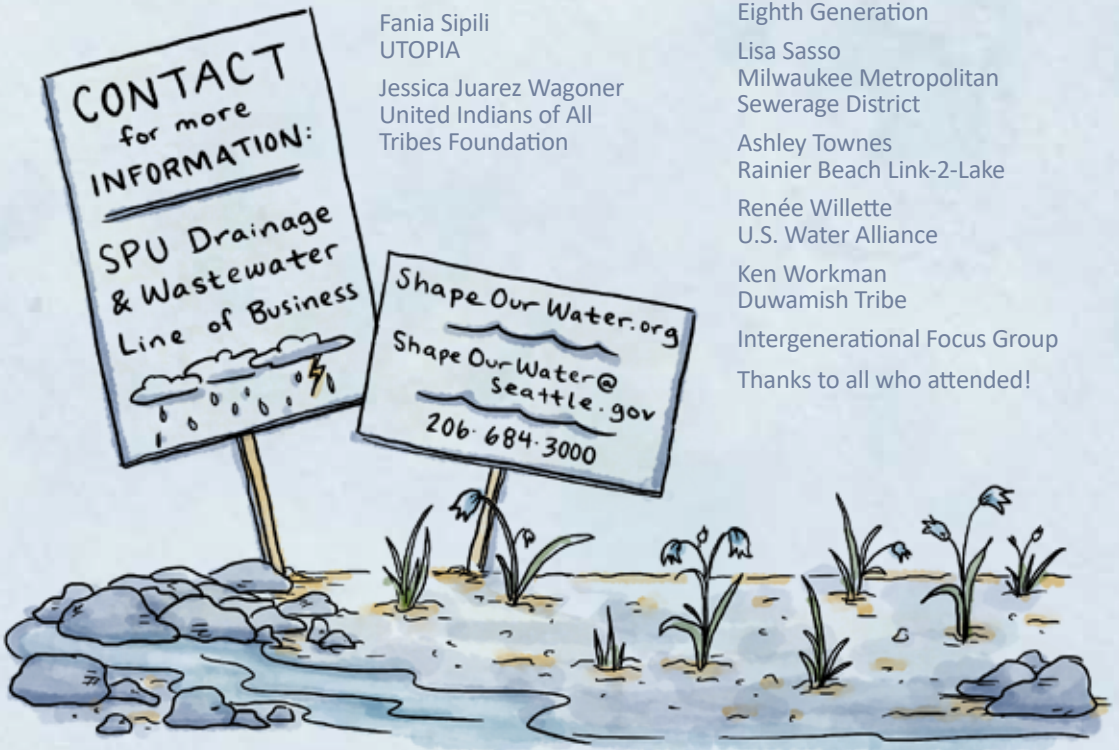 CONTACT
for more
INFORMATION:
SPU Drainage
& Wastewater
Line of Business
Shape Our Water.org
Shape Our Water@
seattle.gov
206.684.3000
Fania Sipili
UTOPIA
Jessica Juarez Wagoner
United Indians of All
Tribes Foundation
Eighth Generation
Lisa Sasso
Milwaukee Metropolitan
Sewerage District
Ashley Townes
Rainier Beach Link-2-Lake
Renée Willette
U.S. Water Alliance
Ken Workman
Duwamish Tribe
Intergenerational Focus Group
Thanks to all who attended!